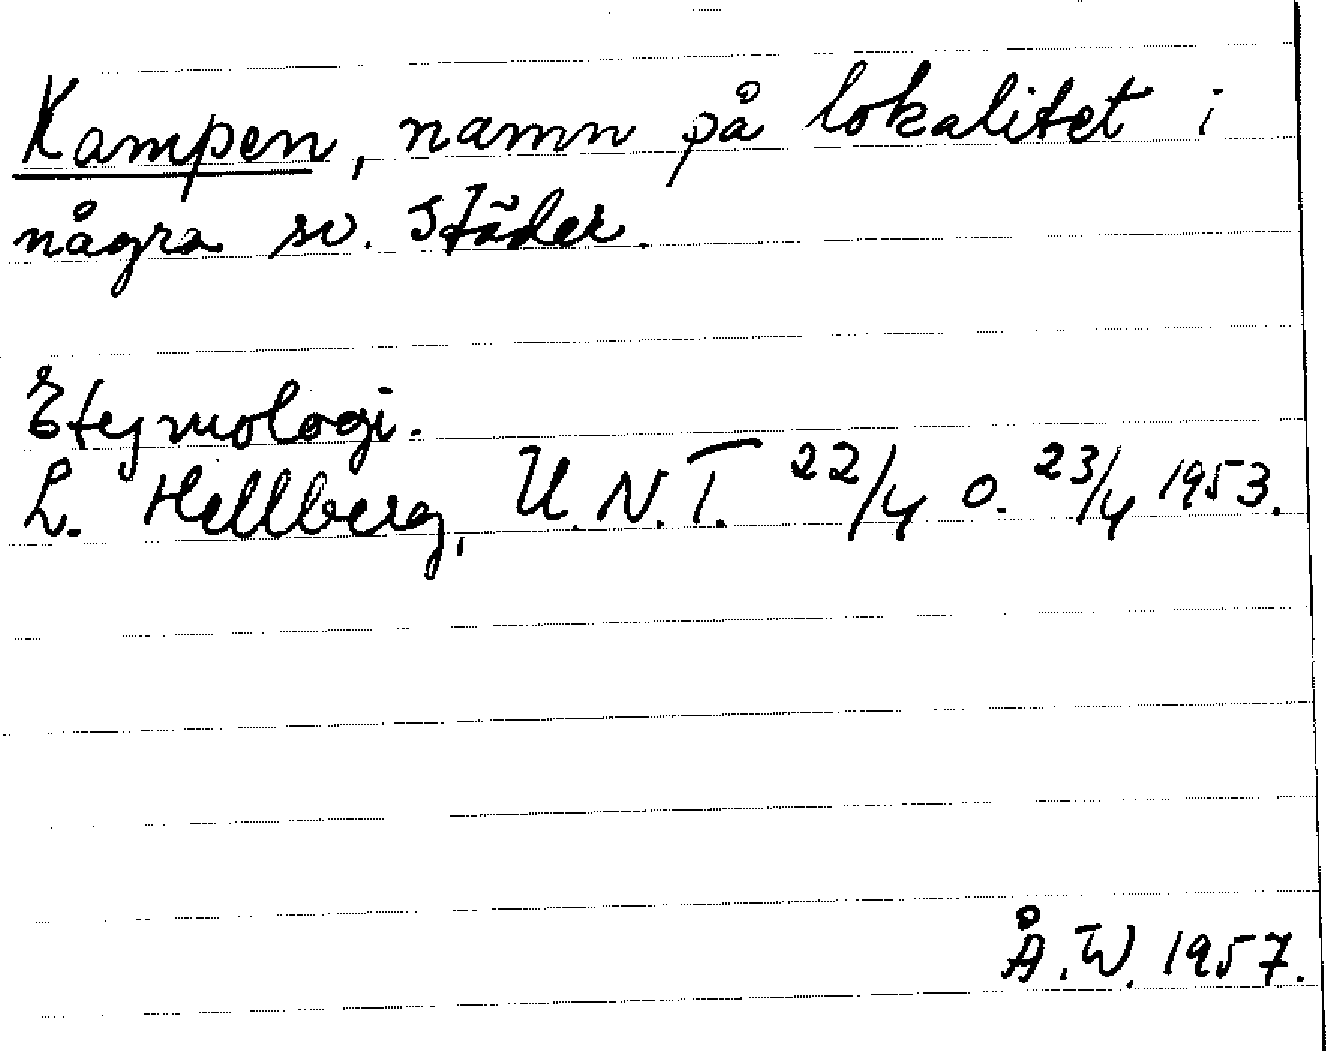 Kampen, namn på lokalitet i
några sv. städer.
Etymologi.
L. Hellberg, U.N.T. 22/4 o. 23/4 1953.
Å.W. 1957.